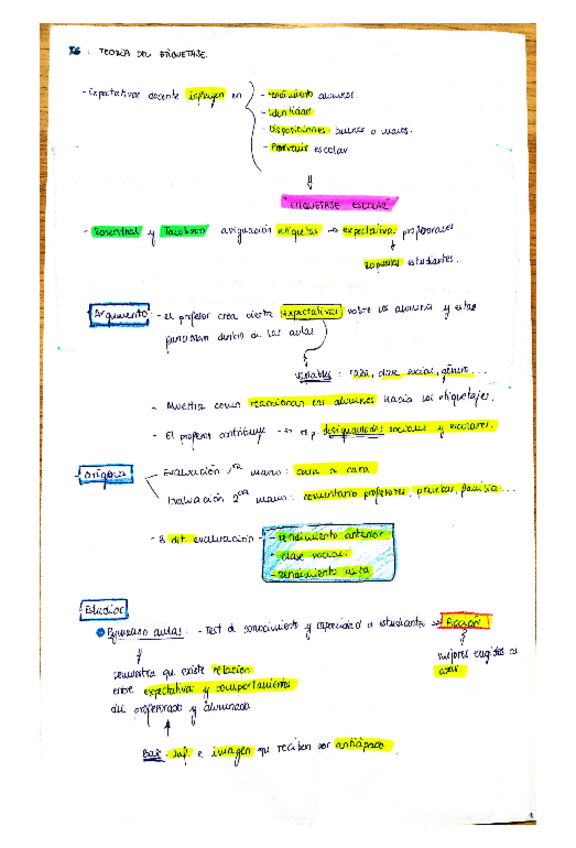 T6: TEORÍA DEL ETIQUETAJE.
- Expectativas docente influyen en
- rendimiento alumnos.
- identidad
- Disposiciones buenas o malas.
- Porvenir escolar
"ETIQUETAJE ESCOLAR"
- Rosenthal y Jacobson asignación etiquetas → expectativa profesorales
respuestas estudiantes.
Argumento - el profesor crea cierta expectativas sobre los alumnos y estas
funcionan dentro de las aulas
variables: raza, clase social, género...
- Muestra como reaccionan los alumnos hacia los etiquetajes.
- El profesor contribuye → rep. desigualdades sociales y escolares.
Orígenes - Evaluación 1ra mano: cara a cara
Evaluación 2da mano: comentario profesores, pruebas, familia...
- 3 dif. evaluación
- rendimiento anterior
- clase social.
- rendimiento
Estudios
Pigmalion aulas. - Test de conocimiento y capacidad a estudiantes → Ficción
mejores elegidos al
azar
demuestra que existe relación
entre expectativas y comportamientos
del profesorado y alumnado
Base: inf. e imagen que reciben por anticipado.